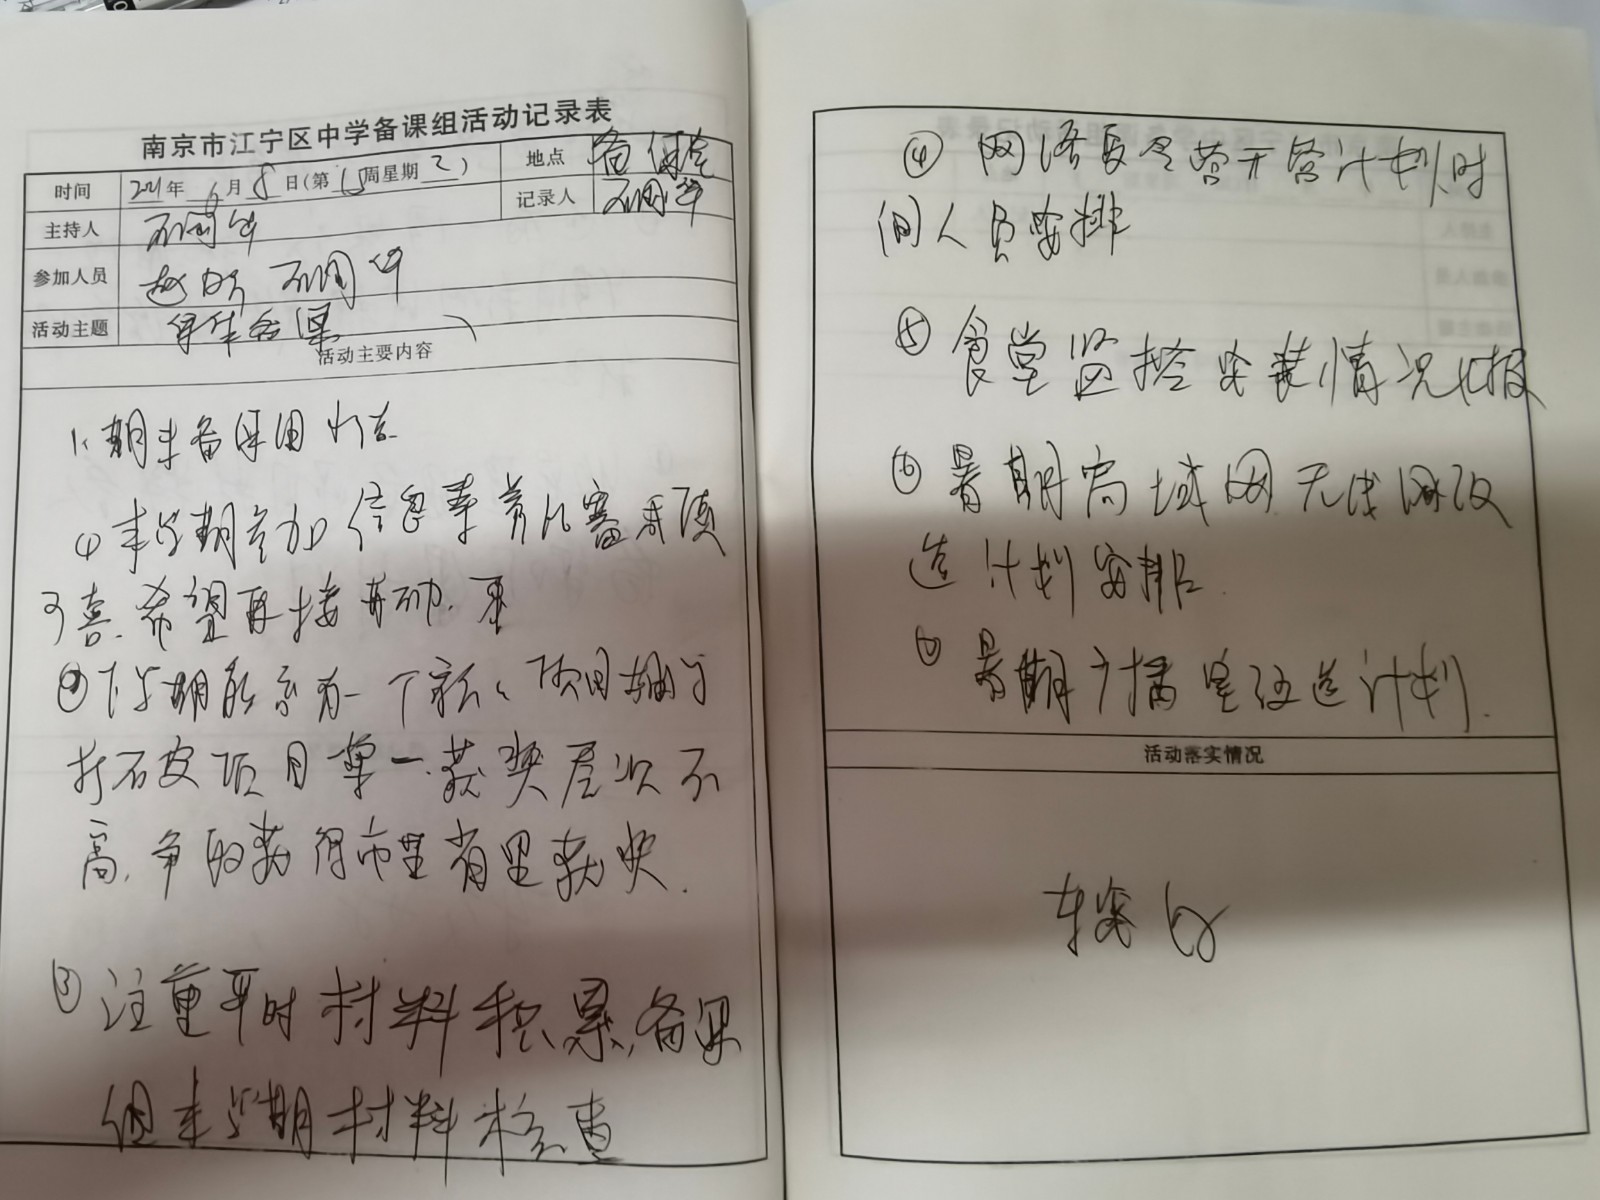 南京市江宁区中学备课组活动记录表
时间 2021年 6月 8日(第 15周星期 二) 地点 备课室
主持人 记录人
参加人员
活动主题 备课
活动主要内容
1、期末备课组
① 本学期参加信息素养比赛成绩
可喜.希望再接再励.
② 下学期 有一个新 项目
打破项目单一.获奖层次不
高.争取获得市里省里获奖.
③ 注重平时材料积累,备课
组本学期材料检查
④ 网络夏令营开营计划,时
间人员安排
⑤ 食堂监控安装情况汇报
⑥ 暑期局域网无线网改
造计划安排.
暑期广播室改造计划.
活动落实情况